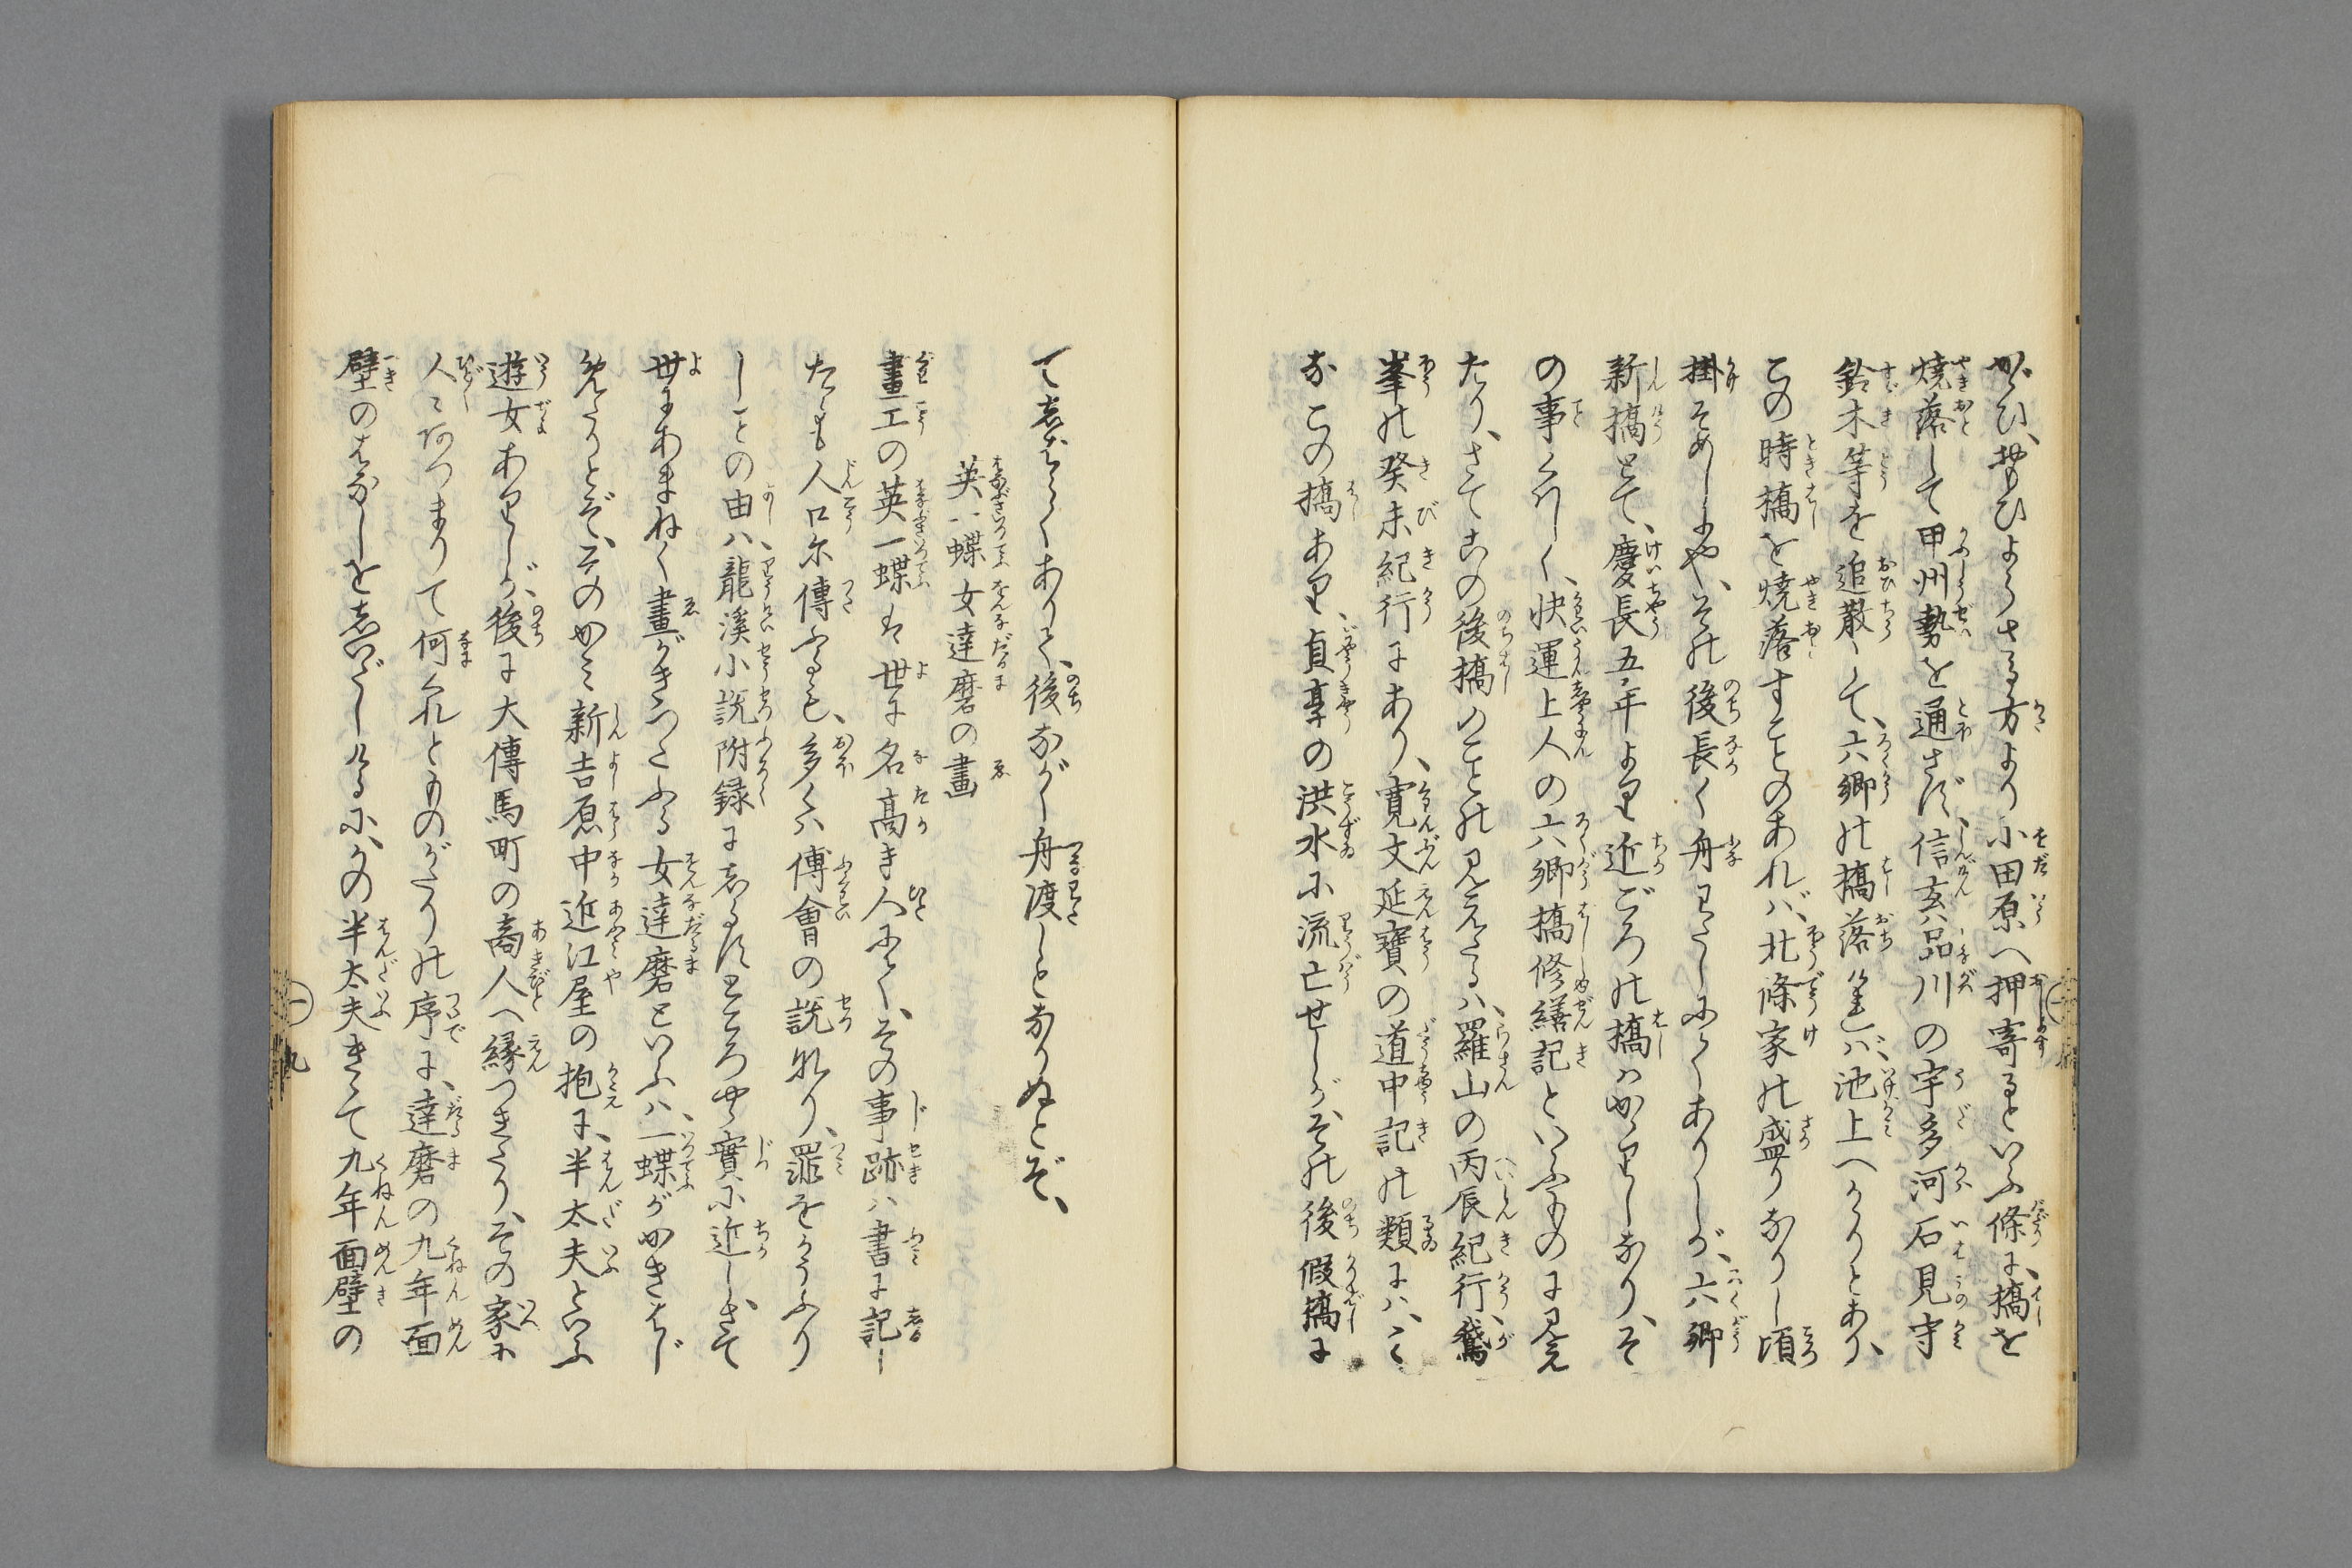 がひ、おもひよらざる方より小田原へ押寄るといふ條に、橋を
燒落して甲州勢を通さず、信玄品川の宇多河石見守
鈴木等を追散して、六卿の橋落ければ、池上へかゝりとあり、
この時橋を燒落すことのあれば、北條家の盛りなりし頃
掛そめしにや、その後長く舟わたしにてありしが、六卿
新橋とて、慶長五年より近ごろの橋はかゝりしなり、そ
の事くはしく、快運上人の六卿橋修繕記といふものに見え
たり、さてこの後橋のことの見えたるは、羅山の丙辰紀行、鵞
峯の癸未紀行にあり、寛文延寶の道中記の類には、みな
なこの橋あり、貞享の洪水に流亡せしが、その後假橋に
てしばらくありて、後ながく舟渡しとなりぬとぞ、
英一蝶女達磨の畫
畫工の英一蝶は世に名高き人にて、その事跡は書に記し
たるも人口に傳ふるも、多くは傅會の説なり、罪をかうふり
しことの由は、龍溪小説附録にしるすところやゝ實に近し、さて
世にあまねく畫がきつたふる女達磨といふは、一蝶がかきはじ
めたりとぞ、そのかみ新吉原中近江屋の抱に、半太夫といふ
遊女ありしが、後に大傳馬町の商人へ縁つきたり、その家に
人〻あつまりて何くれとものがたりの序に、達磨の九年面
壁のはなしをしいだしけるに、かの半太夫きゝて九年面壁の
一
九